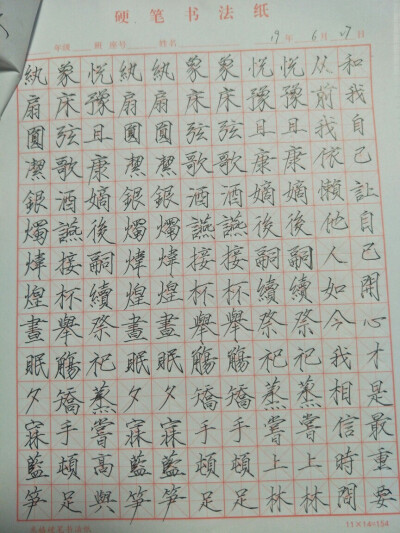 硬笔书法纸
年级 班 座号 姓名 19年6月27日
和我自己让自己開心才是最重要
从前我依懒他人如今我相信時間
悦豫且康嫡後嗣續祭祀蒸嘗上林
悦豫且康嫡後嗣續祭祀蒸嘗上林
象床弦歌酒讌接杯舉觴矯手頓足
象床弦歌酒讌接杯舉觴矯手頓足
紈扇圓潔銀燭煒煌晝眠夕寐藍笋
紈扇圓潔銀燭煒煌晝眠夕寐藍笋
悦豫且康嫡後嗣續祭祀蒸嘗高與
象床弦歌酒讌接杯舉觴矯手頓足
紈扇圓潔銀燭煒煌晝眠夕寐藍笋
硬笔书法纸 11×14=154